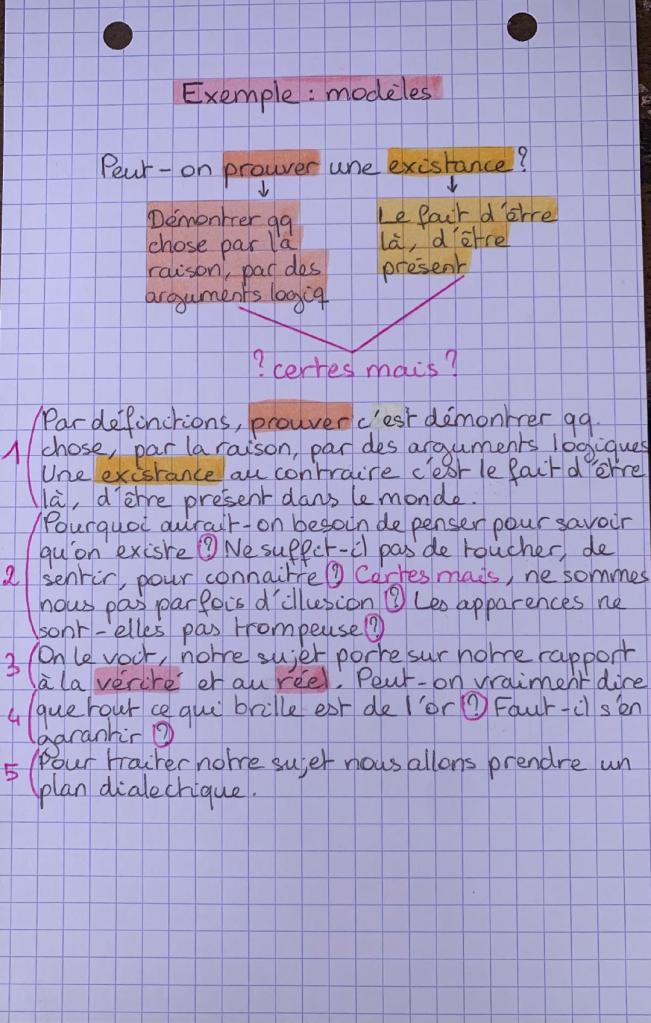 Exemple : modèles
Peut-on prouver une existance ?
Démontrer qq
chose par la
raison, par des
arguments logiq
Le fait d'être
là, d'être
présent
? certes mais ?
1
Par définitions, prouver c'est démontrer qq.
chose, par la raison, par des arguments logiques
Une existance au contraire c'est le fait d'être
là, d'être présent dans le monde.
2
Pourquoi aurait-on besoin de penser pour savoir
qu'on existe ? Ne suffit-il pas de toucher, de
sentir, pour connaitre ? Certes mais, ne sommes
nous pas parfois d'illusion ? Les apparences ne
sont-elles pas trompeuse ?
3
On le voit, notre sujet porte sur notre rapport
à la vérité et au réel. Peut-on vraiment dire
4
que tout ce qui brille est de l'or ? Faut-il s'en
garantir ?
5
Pour traiter notre sujet nous allons prendre un
plan dialectique.